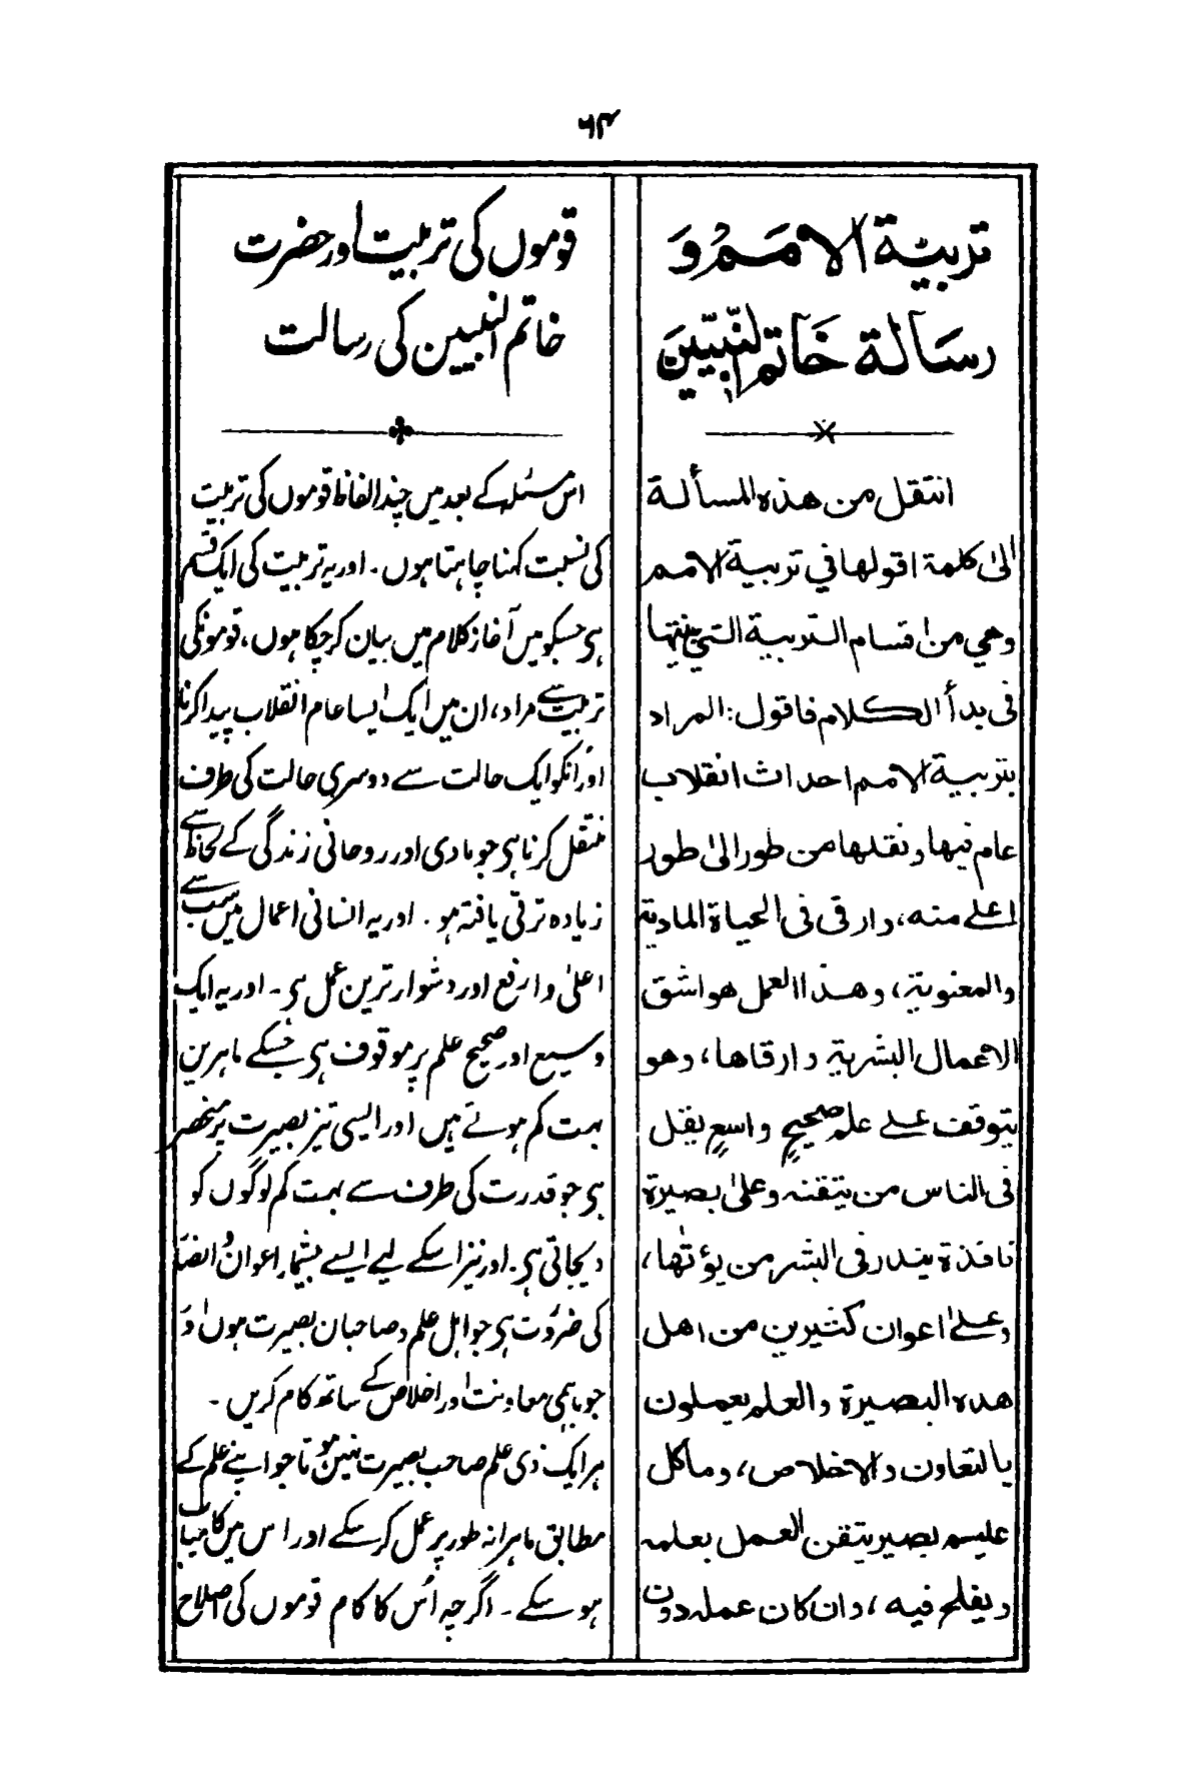 ۶۴
تربية الامم و
رسالة خاتم النبيين
انتقل من هذه المسألة
الىٰ كلمة اقولها في تربية الامم
وهي من اقسام التربية التي بينتها
فى بدأ الكلام فاقول: المراد
بتربية الامم احداث انقلاب
عام فيها ونقلها من طور الىٰ طور
اعلے منه، وارقى فى الحياة المادية
والمعنوية، وهذا العمل هو اشق
الاعمال البشرية وارقاها، وهو
يتوقف علے علم صحيحٍ واسعٍ يقل
فى الناس من يتقنه وعلىٰ بصيرة
نافذة يندر فى البشر من يؤتٰها،
وعلےٰ اعوان كثيرين من اهل
هذه البصيرة والعلم يعملون
بالتعاون والاخلاص، وما كل
عليم بصير يتقن العمل بعلمه
ويفلح فيه، وان كان عمله دون
قوموں کی تربیت اور حضرت
خاتم النبیین کی رسالت
اس مسئلہ کے بعد میں چند الفاظ قوموں کی تربیت
کی نسبت کہنا چاہتا ہوں۔ اور یہ تربیت کی ایک قسم
ہی جسکو میں آغاز کلام میں بیان کرچکا ہوں، قومونکی
تربیت سے مراد، ان میں ایک ایسا عام انقلاب پیدا کرنا
اور اُنکو ایک حالت سے دوسری حالت کی طرف
منتقل کرنا ہی جو مادی اور روحانی زندگی کے لحاظ سے
زیادہ ترقی یافتہ ہو۔ اور یہ انسانی اعمال میں سب سے
اعلیٰ وارفع اور دشوار ترین عمل ہی۔ اور یہ ایک
وسیع اور صحیح علم پر موقوف ہی جسکے ماہرین
بہت کم ہوتے ہیں اور ایسی تیز بصیرت پر منحصر
ہی جو قدرت کی طرف سے بہت کم لوگوں کو
دیجاتی ہی۔ اور نیز اسکے لیے ایسے بیشمار اعوان وُ انصار
کی ضروت ہی جو اہل علم و صاحبان بصیرت ہوں اور
جو باہمی معاونت اور اخلاص کے ساتھ کام کریں۔
ہر ایک ذی علم صاحب بصیرت نہیں ہوتا جو اپنے علم کے
مطابق ماہرانہ طور پر عمل کرسکے اور اس میں کامیاب
ہوسکے۔ اگرچہ اُس کا کام قوموں کی اصلاح